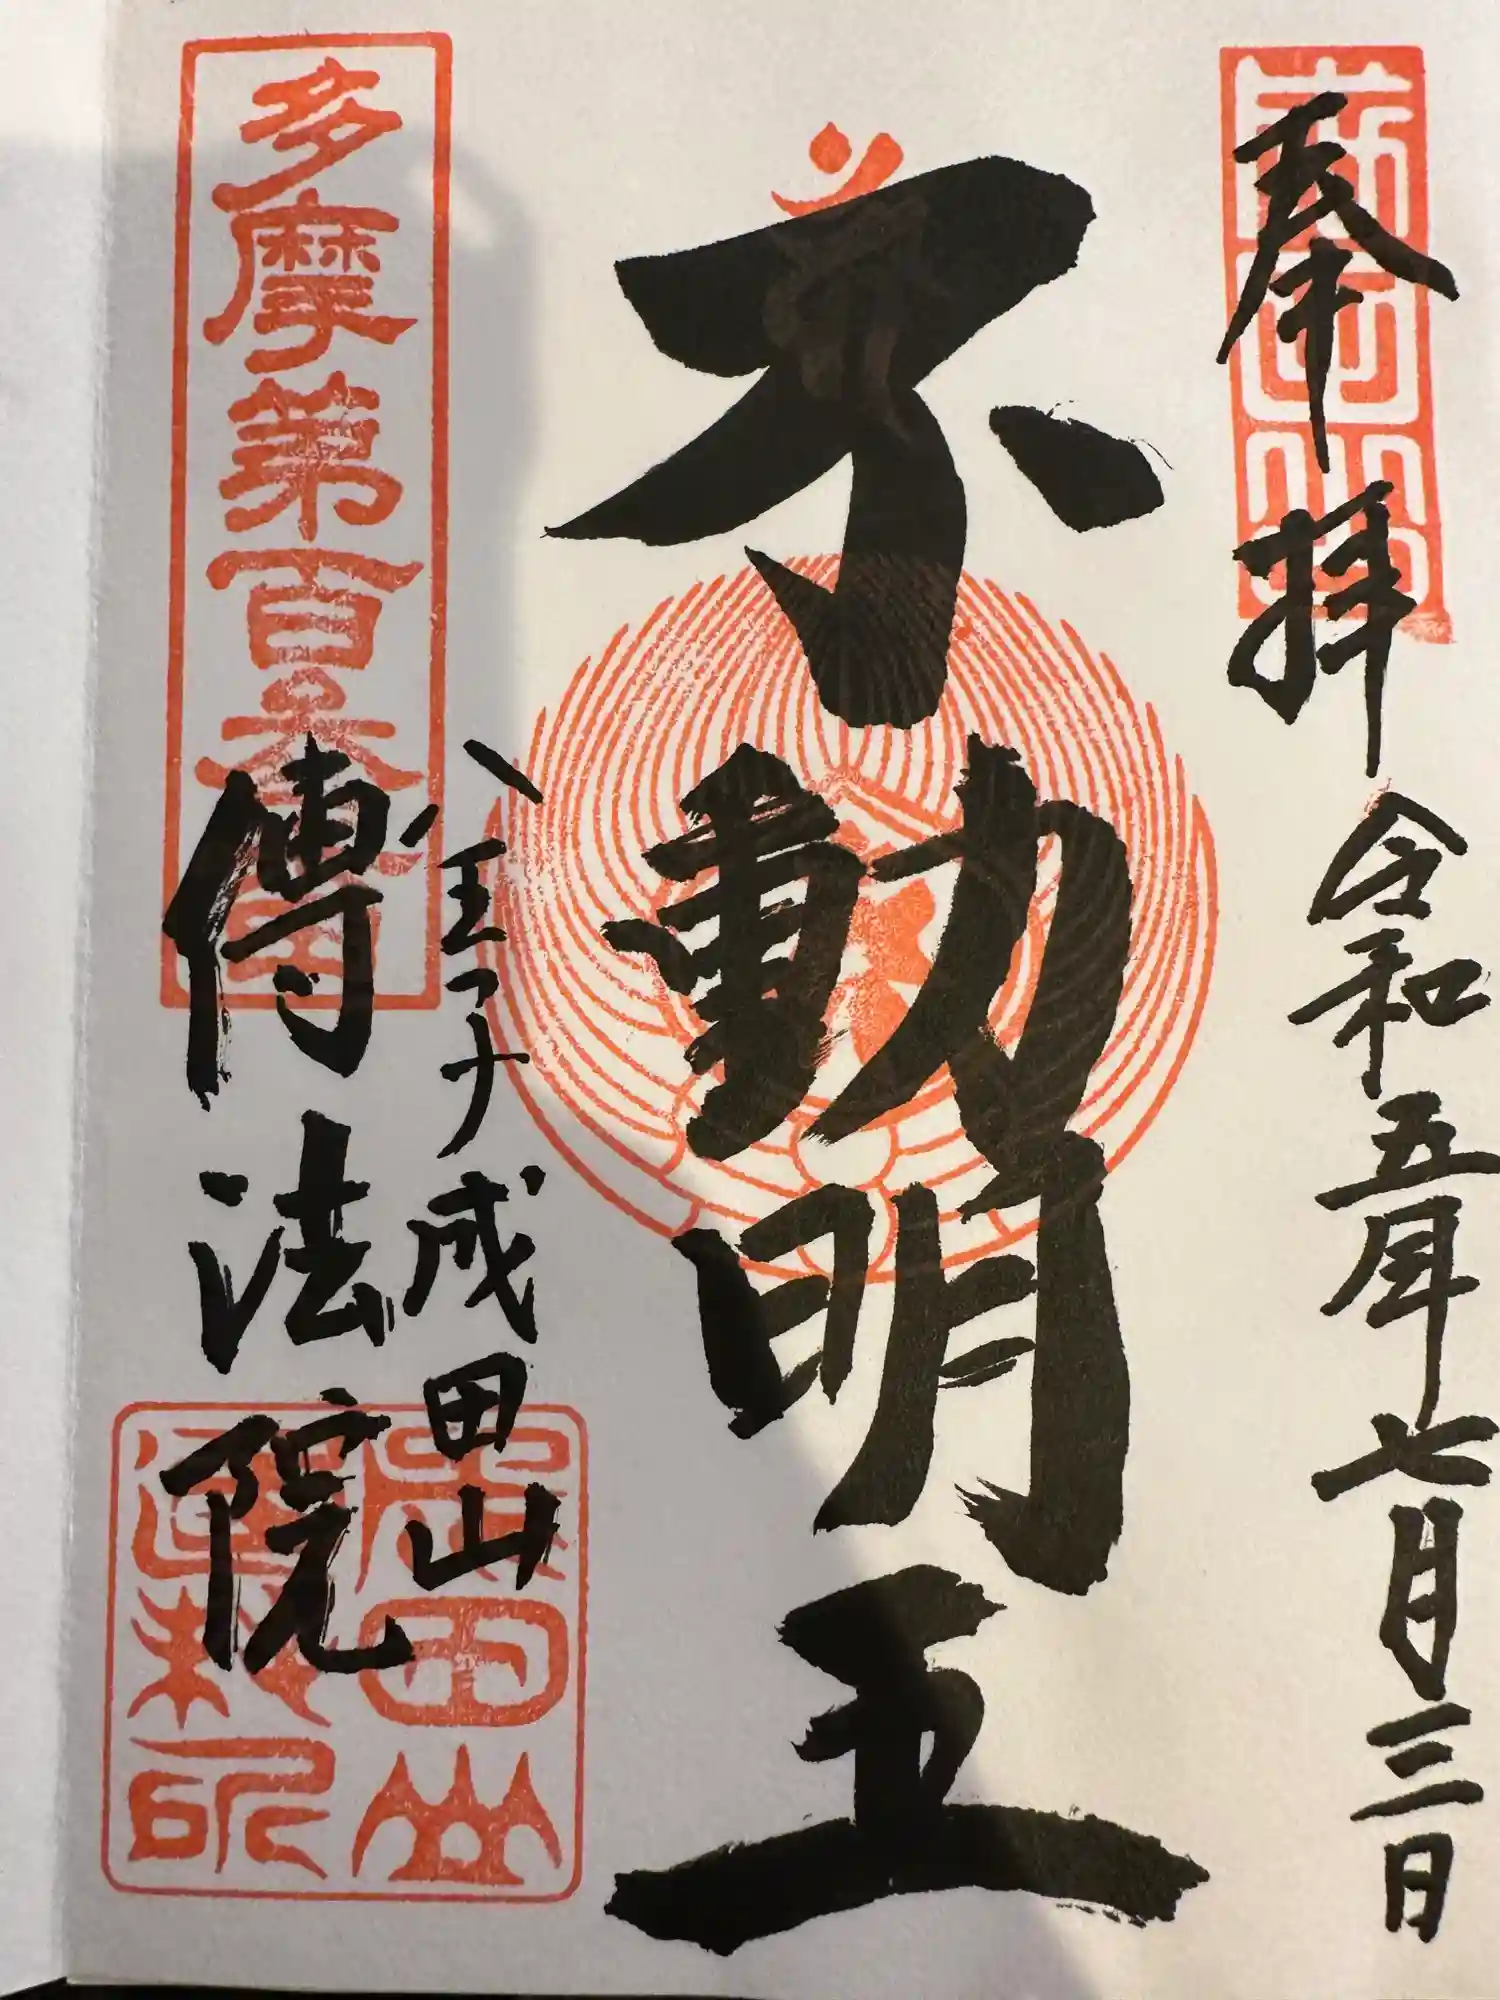 奉拝
令和五年七月三日
不動明王
八王子成田山
傳法院
成田山
多摩第百